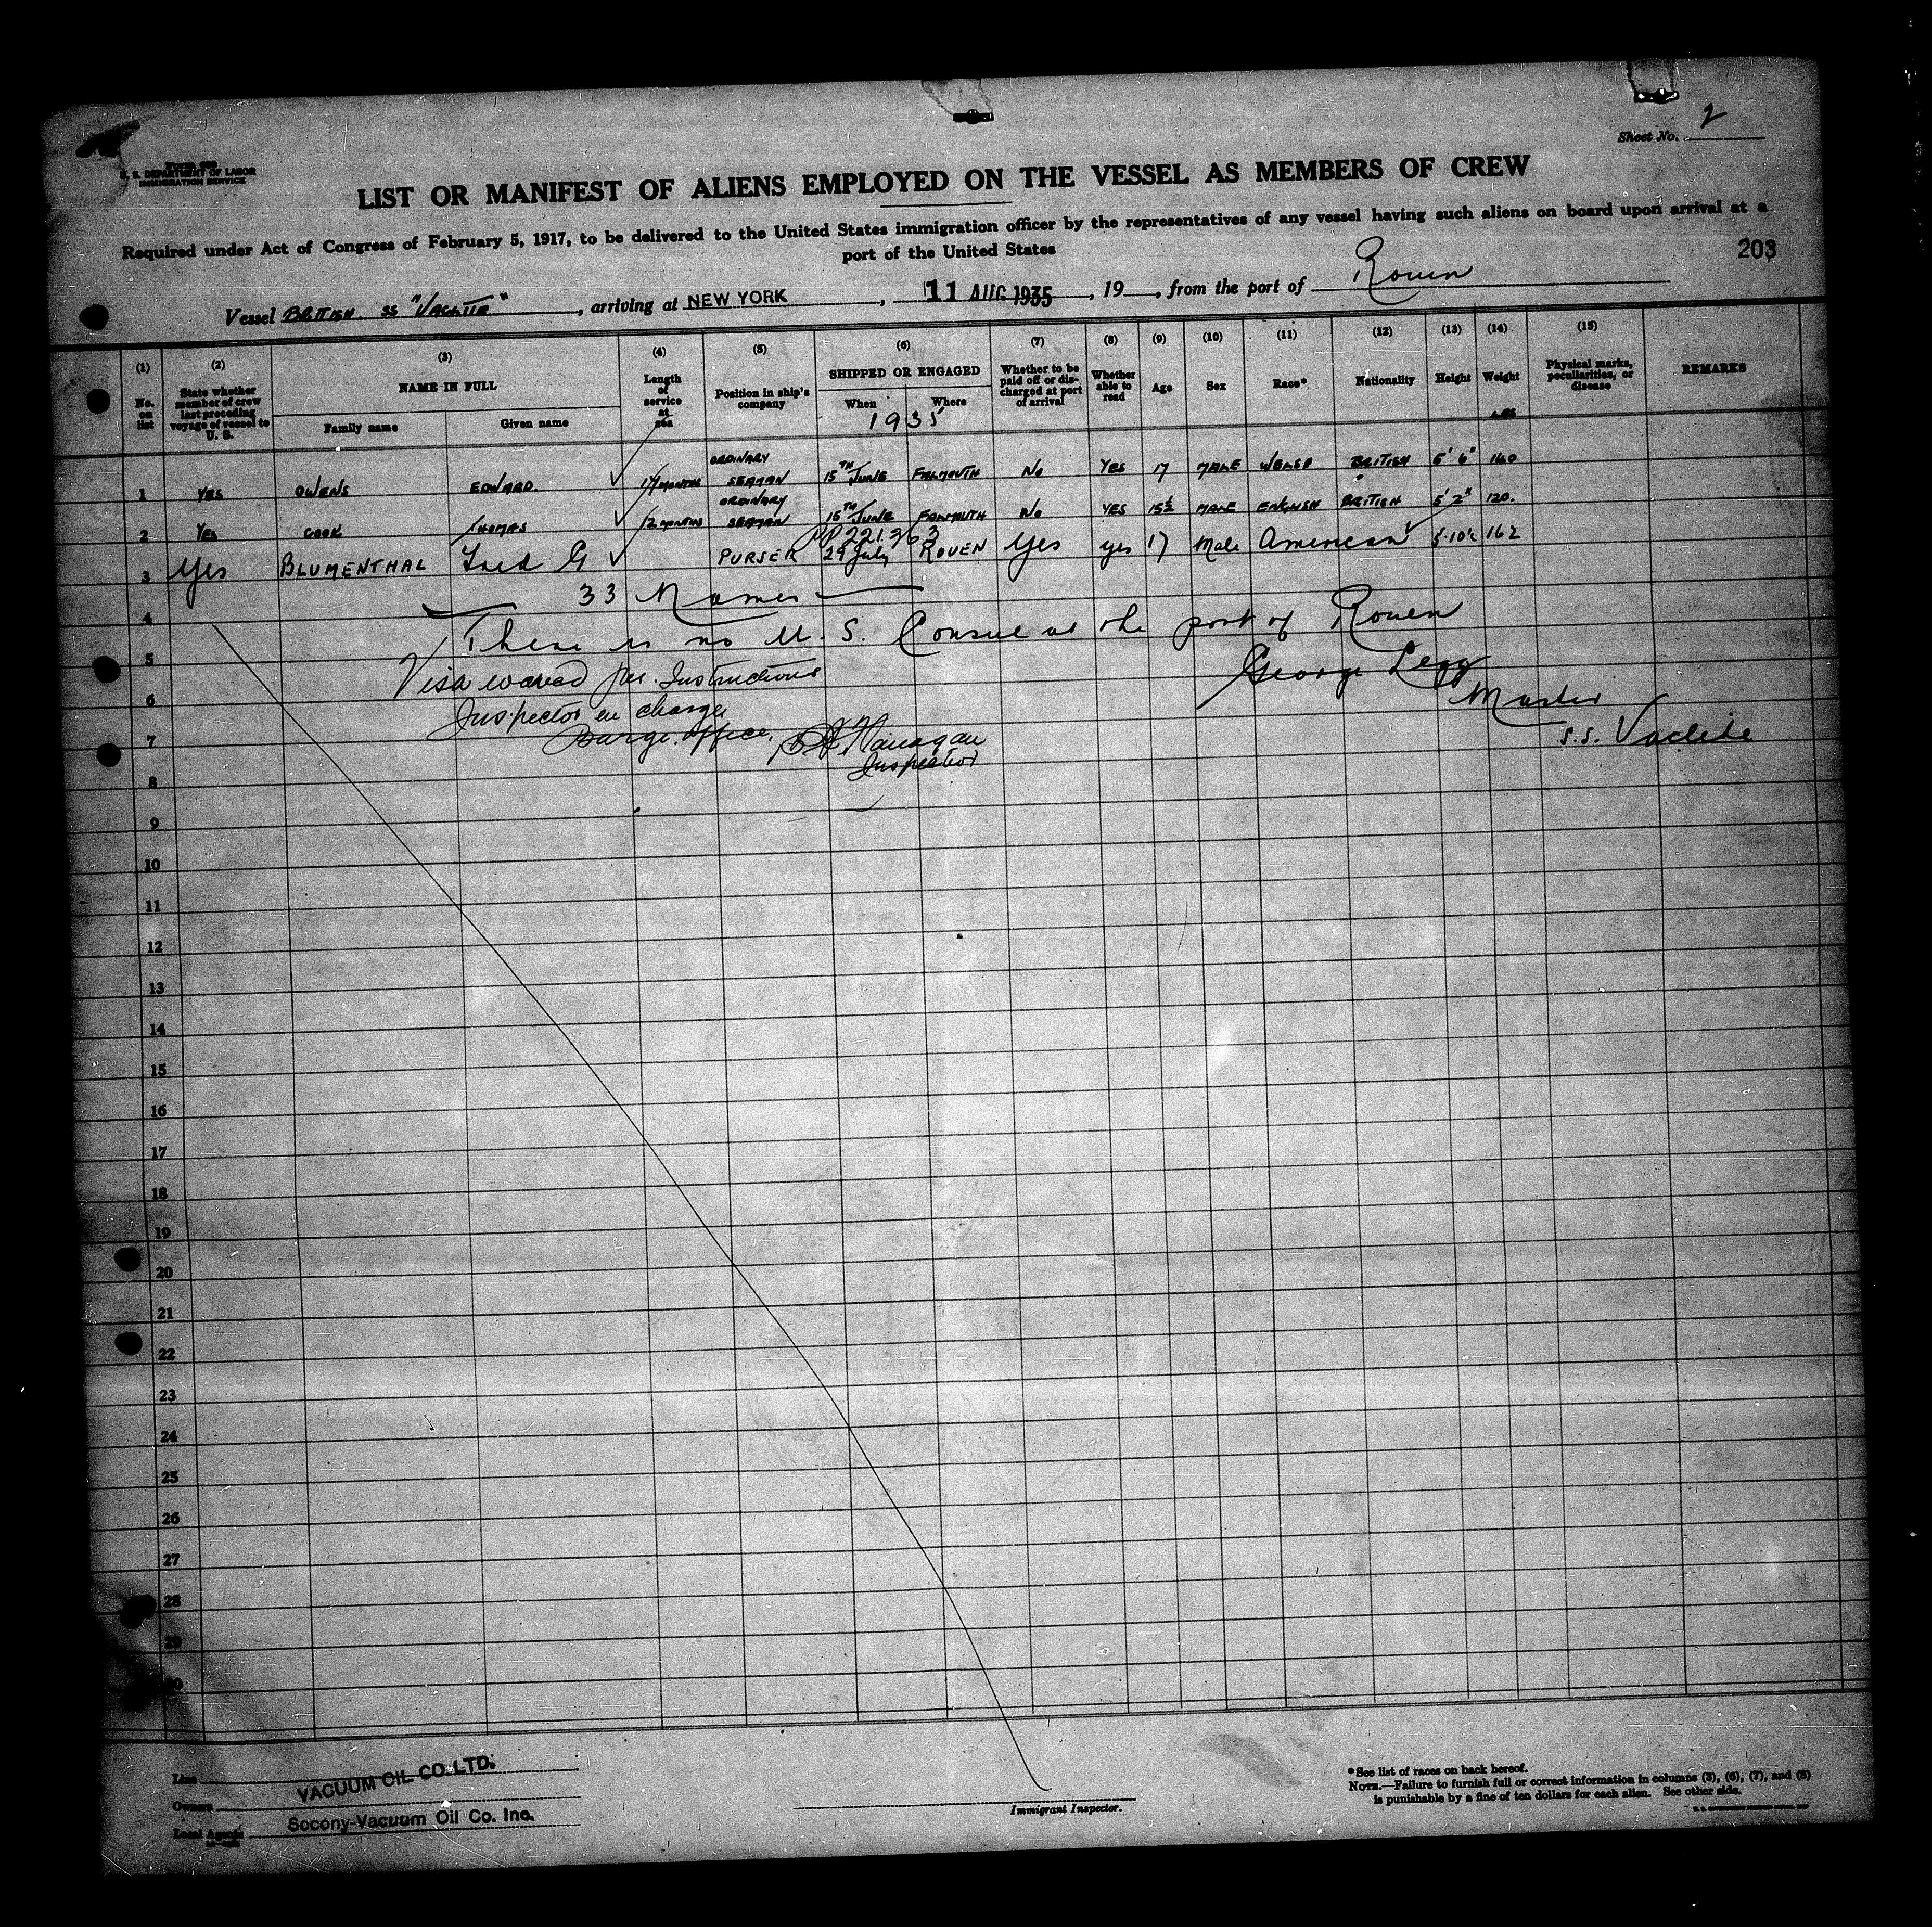 Sheet No. 2
Form 689
U. S. DEPARTMENT OF LABOR
IMMIGRATION SERVICE
LIST OR MANIFEST OF ALIENS EMPLOYED ON THE VESSEL AS MEMBERS OF CREW
Required under Act of Congress of February 5, 1917, to be delivered to the United States immigration officer by the representatives of any vessel having such aliens on board upon arrival at a
port of the United States
203
Vessel BRITISH SS "VACLITE", arriving at NEW YORK, 11 AUG 1935, 19, from the port of Rouen
(1) (2) (3) (4) (5) (6) (7) (8) (9) (10) (11) (12) (13) (14) (15)
No. on list
State whether member of crew last preceding voyage of vessel to U. S.
NAME IN FULL
Family name
Given name
Length of service at sea
Position in ship's company
SHIPPED OR ENGAGED
When
Where
1935
Whether to be paid off or discharged at port of arrival
Whether able to read
Age
Sex
Race*
Nationality
Height
Weight
LBS
Physical marks, peculiarities, or disease
REMARKS
1 YES OWENS EDWARD. MONTHS ORDINARY SEAMAN 15TH JUNE FALMOUTH No YES 17 MALE WELSH BRITISH 5' 6" 140
2 YES COOK THOMAS 12 MONTHS ORDINARY SEAMAN 15TH JUNE FALMOUTH No YES 15½ MALE ENGLISH BRITISH 5' 2" 120.
PP 221363
3 Yes BLUMENTHAL Fred G PURSER 29 July ROUEN Yes yes 17 Male American 5-10½ 162
33 Names
4
There is no U. S. Consul at the port of Rouen
5
Visa waved per. Instructions
George Legg
6
Inspector in charge
Master
7
Barge office.
S.S. Vaclite
Inspector
8
9
10
11
12
13
14
15
16
17
18
19
20
21
22
23
24
25
26
27
28
29
30
Line
VACUUM OIL CO. LTD.
Owners
Socony-Vacuum Oil Co. Inc.
Local Agents
Immigrant Inspector.
*See list of races on back hereof.
NOTE.—Failure to furnish full or correct information in columns (3), (6), (7), and (8)
is punishable by a fine of ten dollars for each alien. See other side.